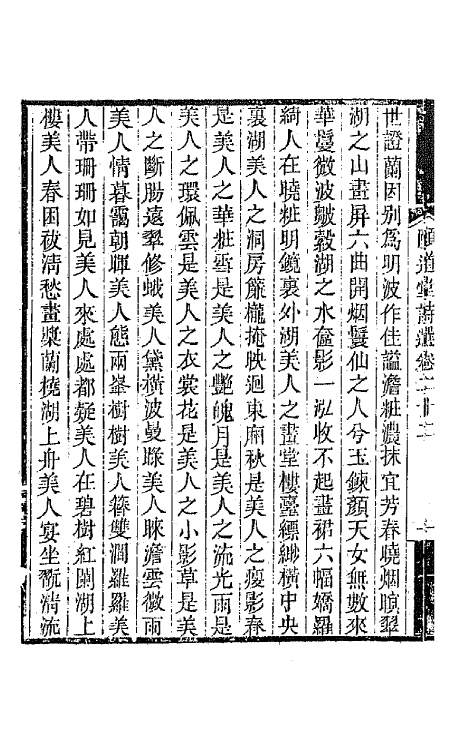 頤道堂詩選卷二十二
世證蘭因别爲明波作佳謚澹粧濃抹宜芳春曉烟暝翠
湖之山畫屏六曲開烟鬟仙之人兮玉鍊顏天女無數來
華鬘微波皺縠湖之水奩影一泓收不起畫裙六幅嬌羅
綺人在曉粧明鏡裏外湖美人之畫堂樓臺縹緲橫中央
裏湖美人之洞房簾櫳掩映迴東廂秋是美人之瘦影春
是美人之華粧雪是美人之艷魄月是美人之流光雨是
美人之環佩雲是美人之衣裳花是美人之小影草是美
人之斷腸遠翠修蛾美人黛橫波曼睩美人睞澹雲微雨
美人情暮靄朝暉美人態兩峯樹樹美人簪雙澗羅羅美
人帶珊珊如見美人來處處都疑美人在碧樹紅闌湖上
樓美人春困祓清愁畫槳蘭橈湖上舟美人宴坐翫清流